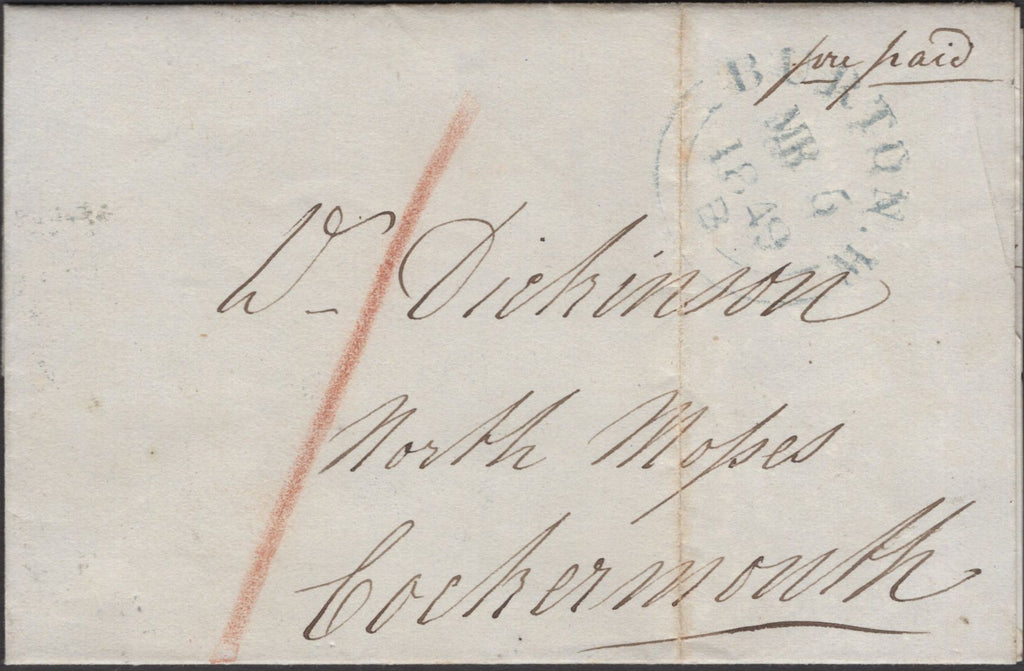 pre paid
BURTON.W
MR 6
1849
B
Dr Dickinson
North Mosses
Cockermouth